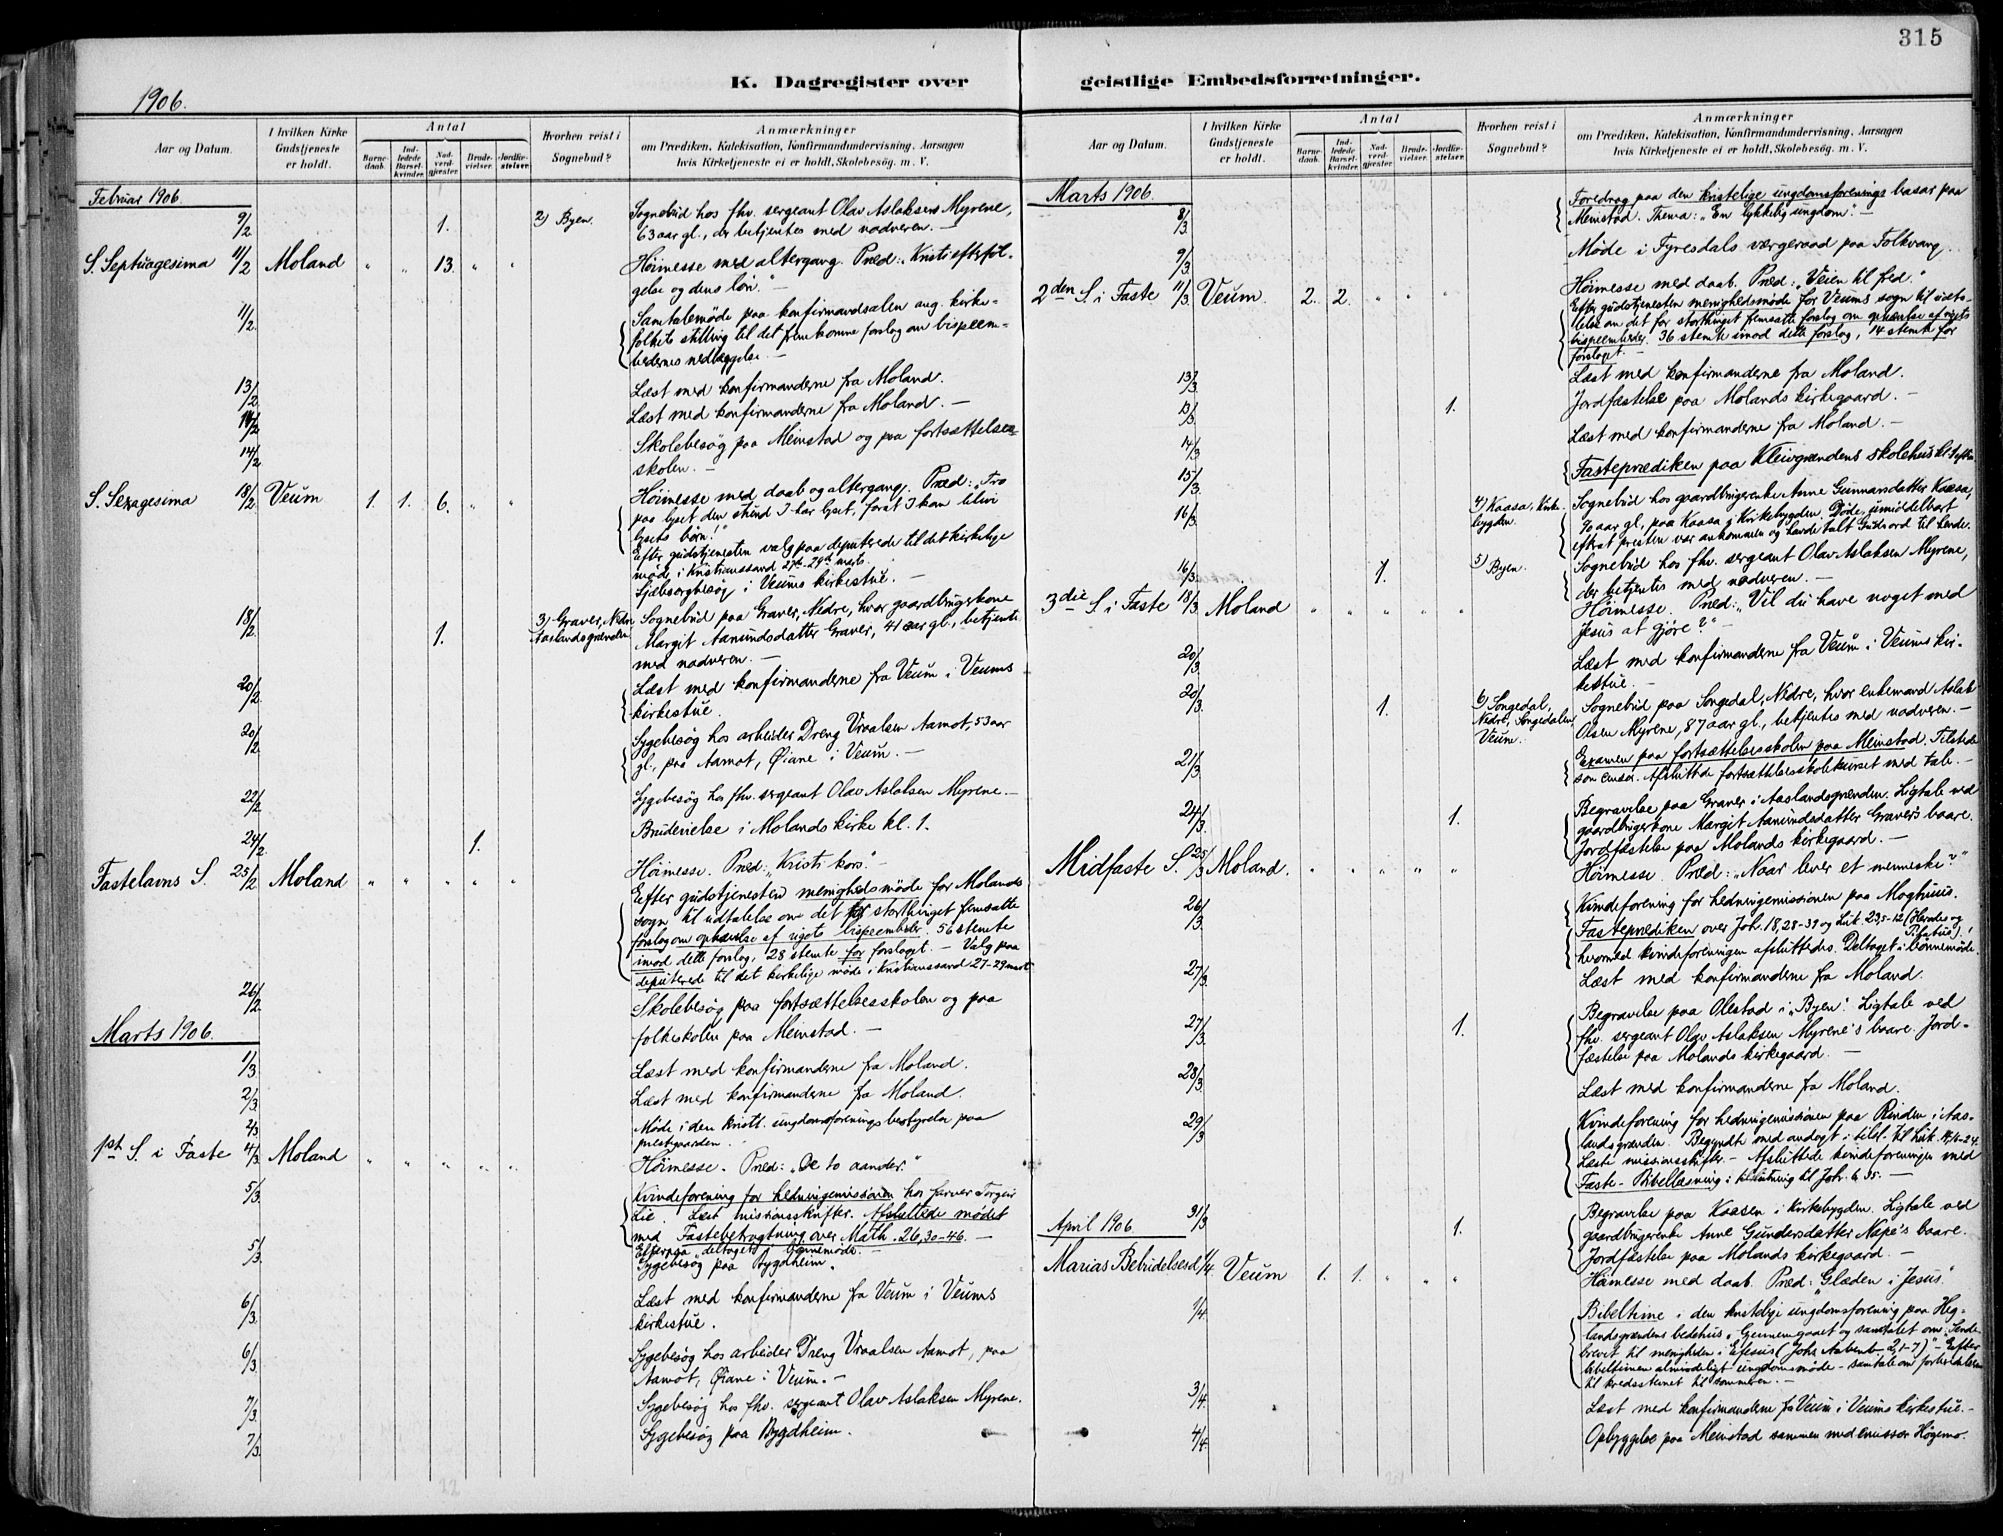 315
K. Dagregister over
geistlige Embedsforretninger.
1906.
Aar og Datum.
I hvilken Kirke Gudstjeneste er holdt.
Antal
Barne-daab.
Ind-ledede Barsel-kvinder.
Nad-verd-gjester.
Brude-vielser.
Jordfæ-stelser.
Hvorhen reist i Sognebud?
Anmærkninger
om Prædiken, Katekisation, Konfirmandundervisning, Aarsagen
hvis Kirketjeneste ei er holdt, Skolebesøg. m. V.
Februar 1906.
9/2 1. 2) Byen. Sognebud hos fhv. sergeant Olav Aslaksen Myrene,
63 aar gl., der betjentes med nadveren. —
S. Septuagesima 11/2 Moland " " 13. " " Høimesse med altergang. Præd.: "Kristi efterføl-
gelse og dens løn." —
11/2 Samtalemøde paa konfirmandsalen ang. kirke-
folkets stilling til det fremkomne forslag om bispeem-
bedernes nedlæggelse. —
13/2 Læst med konfirmanderne fra Moland.
14/2 Læst med konfirmanderne fra Moland. —
14/2 Skolebesøg paa Meinstad og paa fortsættelses-
skolen. —
S. Sexagesima 18/2 Veum 1. 1. 6. " " Høimesse med daab og altergang. Præd.: "Tro
paa lyset den stund I har lyset, forat I kan blive
lysets børn!"
Efter gudstjenesten valg paa deputerede til det kirkelige
møde i Kristianssand 27de-29de marts.
Sjælesorgbesøg i Veums kirkestue. —
18/2 1. 3) Graver, Nedre Aaslandsgrænden Sognebud paa Graver, Nedre, hvor gaardbrugerkone
Margit Aanundsdatter Graver, 41 aar gl., betjente
med nadveren. —
20/2 Læst med konfirmanderne fra Veum i Veums
kirkestue.
20/2 Sygebesøg hos arbeider Dreng Vraalsen Aamot, 53 aar
gl., paa Aamot, Øiane i Veum. —
22/2 Sygebesøg hos fhv. sergeant Olav Aslaksen Myrene. —
24/2 1. Brudevielse i Molands kirke kl. 1.
Fastelavns S. 25/2 Moland " " " " " Høimesse. Præd.: "Kristi kors." —
Efter gudstjenesten menighedsmøde for Molands
sogn til udtalelse om det for storthinget fremsatte
forslag om ophævelse af rigets bispeembeder. 56 stemte
imod dette forslag, 28 stemte for forslaget. — Valg paa
deputerede til det kirkelige møde i Kristianssand 27-29 marts
26/2 Skolebesøg paa fortsættelsesskolen og paa
folkeskolen paa Meinstad. —
Marts 1906.
1/3 Læst med konfirmanderne fra Moland.
2/3 Læst med konfirmanderne fra Moland.
2/3 Møde i den kristl. ungdomsforenings bestyrelse paa
prestgaarden.
1st S. i Faste 4/3 Moland " " " " " Høimesse. Præd.: "De to aander."
5/3 Kvindeforening for hedningemissionen hos farver Torgeir
Lie. Læst missionsskrifter. Afsluttede mødet
med Fastebetragtning over Matth. 26,30-46. —
Efterpaa deltaget i bønnemøde. —
5/3 Sygebesøg paa Bygdheim.
6/3 Læst med konfirmanderne fra Veum i Veums
kirkestue.
6/3 Sygebesøg hos arbeider Dreng Vraalsen Aamot, paa
Aamot, Øiane i Veum. —
7/3 Sygebesøg hos fhv. sergeant Olav Aslaksen Myrene.
7/3 Sygebesøg paa Bygdheim.
Aar og Datum.
I hvilken Kirke Gudstjeneste er holdt.
Antal
Barne-daab.
Ind-ledede Barsel-kvinder.
Nad-verd-gjester.
Brude-vielser.
Jordfæ-stelser.
Hvorhen reist i Sognebud?
Anmærkninger
om Prædiken, Katekisation, Konfirmandundervisning, Aarsagen
hvis Kirketjeneste ei er holdt, Skolebesøg. m. V.
Marts 1906.
8/3 Foredrag paa den kristelige ungdomsforenings basar paa
Meinstad. Thema: "En lykkelig ungdom". —
9/3 Møde i Tyresdals værgeraad paa Folkvang.
2den S. i Faste 11/3 Veum. 2. 2. " " " Høimesse med daab. Præd.: "Veien til fred."
Efter gudstjenesten menighedsmøde for Veums sogn til udta-
lelse om det for storthinget fremsatte forslag om ophævelse af rigets
bispeembeder. 36 stemte imod dette forslag, 14 stemte for
forslaget. —
13/3 Læst med konfirmanderne fra Moland.
13/3 1. Jordfæstelse paa Molands kirkegaard. —
14/3 Læst med konfirmanderne fra Moland. —
15/3 Fasteprædiken paa Kleivgrændens skolehus kl. 5 eftm
16/3 4) Kaasa, Kirke-bygden. Sognebud hos gaardbrugerenke Anne Gunnarsdatter Kaasa,
70 aar gl., paa Kaasa i Kirkebygden. Døde umiddelbart
efterat presten var ankommen og havde talt Guds ord til hende.
16/3 1. 5) Byen. Sognebud hos fhv. sergeant Olav Aslaksen Myrene,
der betjentes med nadveren. —
3die S. i Faste 18/3 Moland " " " " " Høimesse. Præd.: "Vil du have noget med
Jesus at gjøre?" —
20/3 Læst med konfirmanderne fra Veum i Veums kir-
kestue. —
20/3 1. 6) Songedal, Nedre, Songedalen, Veum. Sognebud paa Songedal, Nedre, hvor enkemand Aslak
Olsen Myrene, 87 aar gl., betjentes med nadveren. —
21/3 Examen paa fortsættelsesskolen paa Meinstad. Tilstede
som censor. Afsluttede fortsættelsesskolekurset med tale. —
24/3 1. Begravelse paa Graver i Aaslandsgrænden. Ligtale ved
gaardbrugerkone Margit Aanundsdatter Gravers baare.
Jordfæstelse paa Molands kirkegaard. —
Midfaste S. 25/3 Moland. " " " " " Høimesse. Præd.: "Naar lever et menneske?"
26/3 Kvindeforening for hedningemissionen paa Moghuus.
Fasteprædiken over Joh. 18,28-39 og Luk. 23 5-12 (Herodes og Pilatus),
hvormed kvindeforeningen afsluttedes. Deltaget i bønnemøde.
27/3 Læst med konfirmanderne fra Moland.
27/3 1. Begravelse paa Olestad i "Byen". Ligtale ved
fhv. sergeant Olav Aslaksen Myrene's baare. Jord-
fæstelse paa Molands kirkegaard. —
28/3 Læst med konfirmanderne fra Moland.
29/3 Kvindeforening for hedningemissionen paa Rinden i Aas-
landsgrænden. Begyndte med andagt i tilsl. til Luk. 14,16-24.
Læste missionsskrifter. — Afsluttede kvindeforeningen med
Faste-Bibellæsning i tilslutning til Joh. 6 35. —
31/3 1. Begravelse paa Kaasen i Kirkebygden. Ligtale ved
gaardbrugerenke Anne Gundersdatter Napé's baare.
Jordfæstelse paa Molands kirkegaard. —
April 1906
Marias Bebudelsesd 1/4 Veum 1. 1. " " " Høimesse med daab. Præd.: "Glæden i Jesus."
1/4 Bibeltime i den kristelige ungdomsforening paa Heg-
landsgrændens bedehus. Gjennemgaaet og samtalet om "Sende-
brevet til menigheden i Efesus (Johs Aabenb. 2,1-7)". — Efter
bibeltimen almindeligt ungdomsmøde — samtale om forberedelserne
til kredsstevnet til sommeren. —
3/4 Læst med konfirmanderne fra Veum i Veums kirkestue. —
4/4 Opbyggelse paa Meinstad sammen med emissær Høgemo.